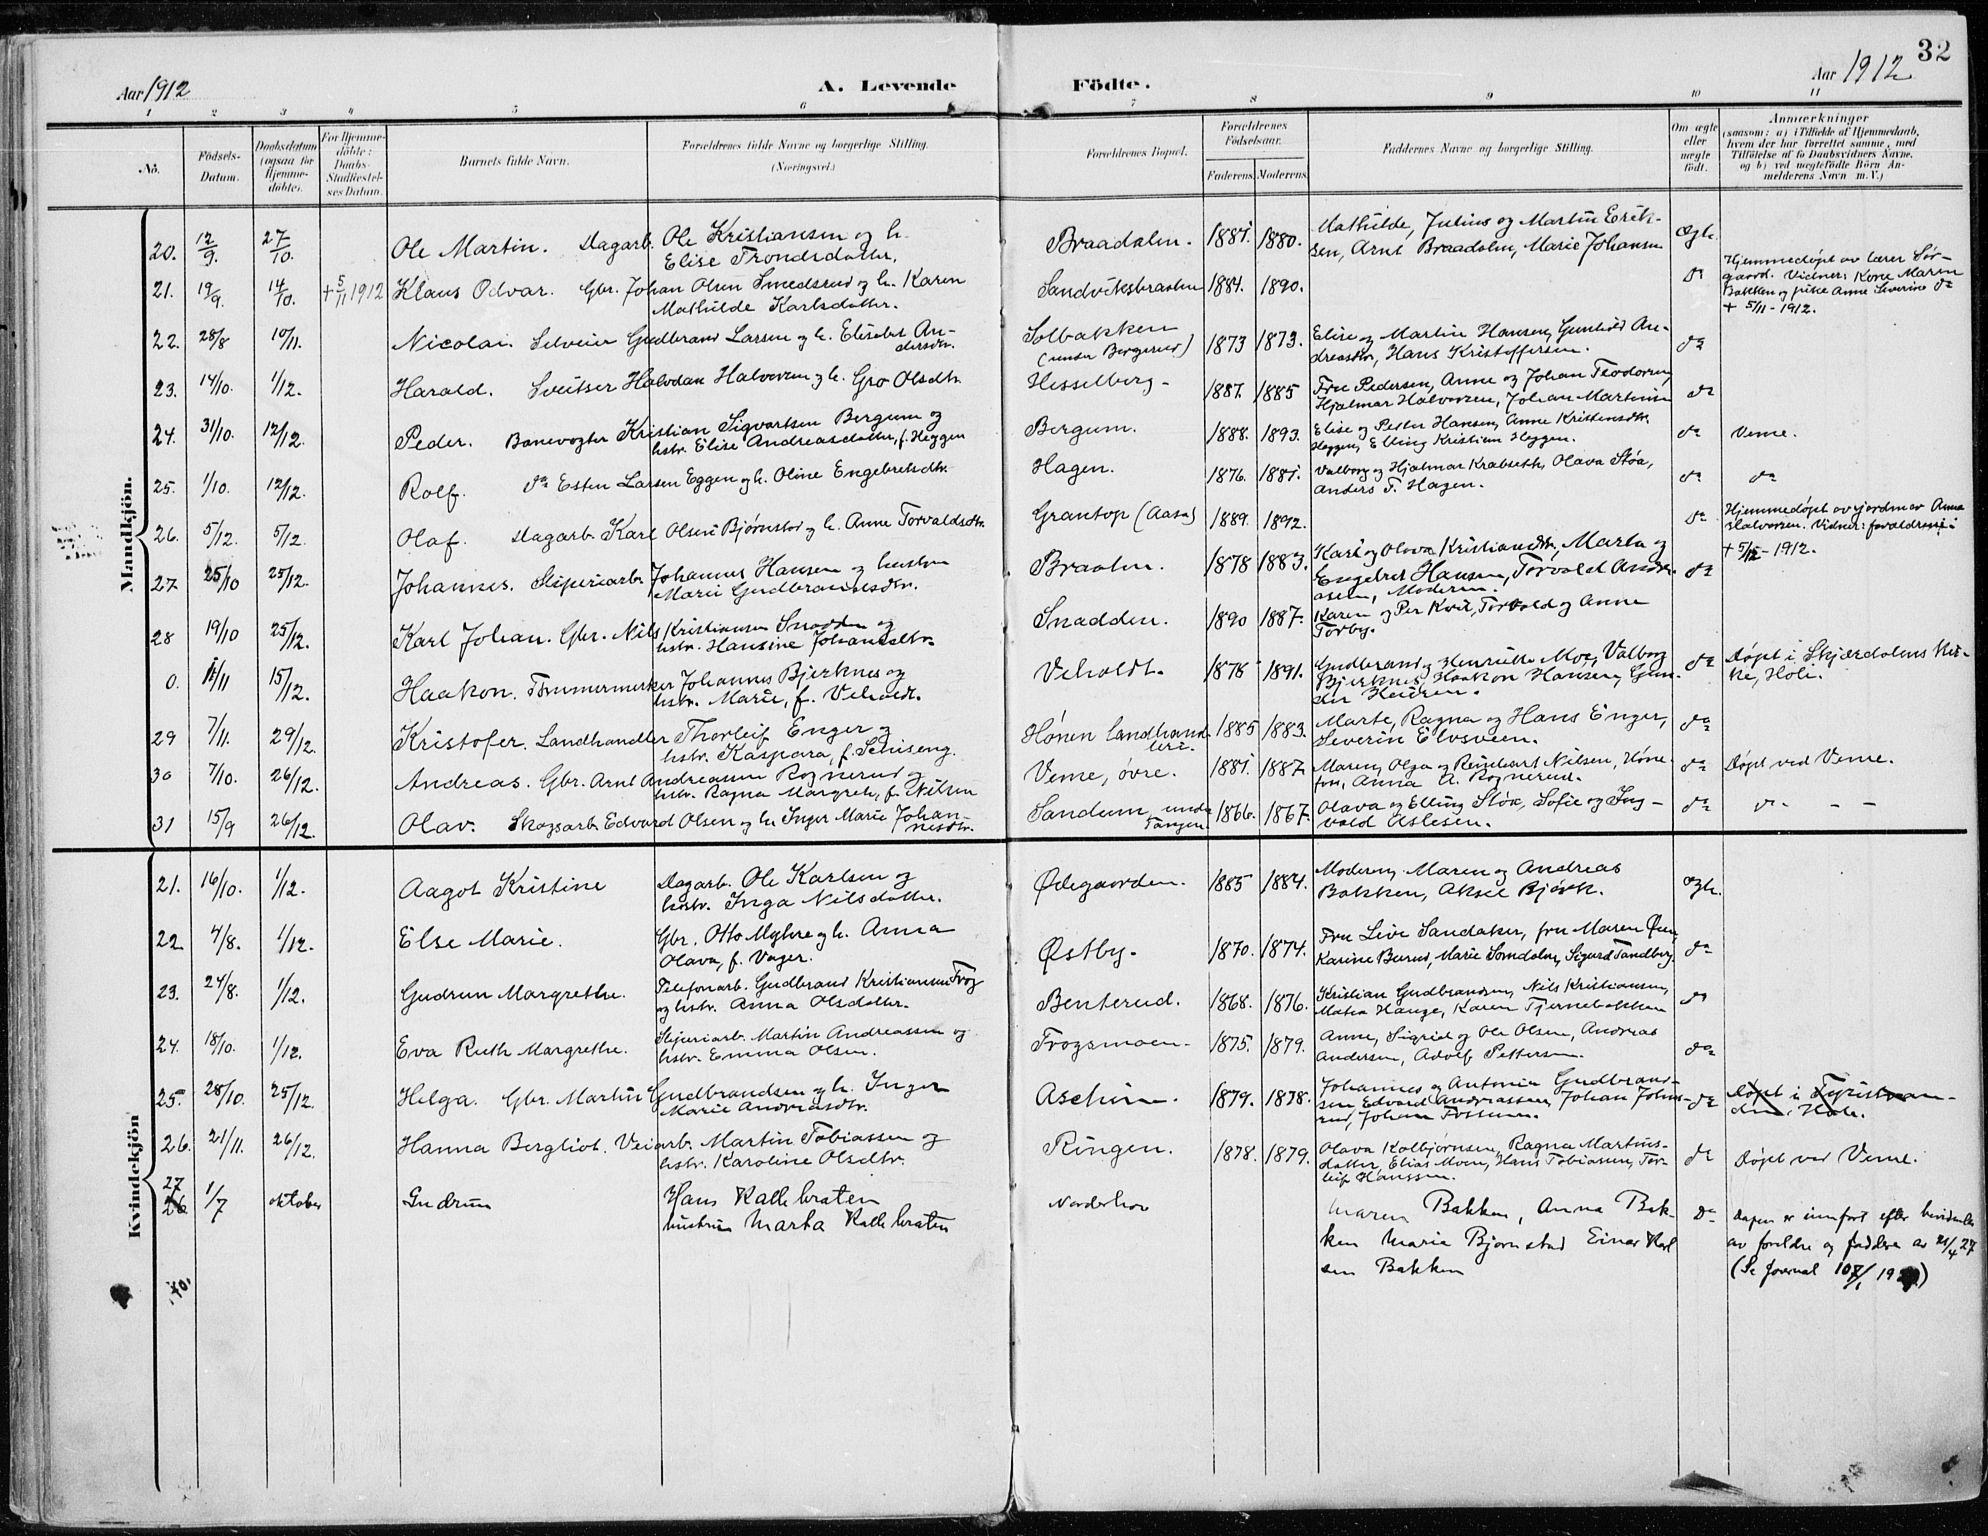 32
Aar 1912
A. Levende Födte.
Aar 1912
1 2 3 4 5 6 7 8 9 10 11
No.
Födsels-Datum.
Daabsdatum (ogsaa for Hjemmedöbte).
For Hjemmedöbte: Daabs-Stadfæstelses Datum.
Barnets fulde Navn.
Forældrenes fulde Navne og borgerlige Stilling. (Næringsvei.)
Forældrenes Bopæl.
Forældrenes Födselsaar.
Faderens. Moderens.
Faddernes Navne og borgerlige Stilling.
Om ægte eller uægte födt.
Anmærkninger (saasom: a) i Tilfælde af Hjemmedaab, hvem der har forrettet samme, med Tilföielse af to Daabsvidners Navne, og b) ved uægtefödte Börn Anmelderens Navn m. V.)
Mandkjön.
20. 12/9. 27/10. Ole Martin. Dagarb. Ole Kristiansen og h. Elise Trondsdatter. Braadalen. 1881. 1880. Mathilde, Julius og Martin Eriksen, Arnt Braadalen, Marie Johansen Ægte.
21. 19/9. 14/10. + 5/11 1912 Klaus Odvar. Gbr. Johan Olsen Smedsrud og h. Karen Mathilde Karlsdatter. Sandviksbraaten 1884. 1890. do Hjemmedøpt av lærer Sørgaard. Vidner: Kone Maren Bakken og pike Anne Severine do + 5/11 - 1912.
22. 28/8 10/11. Nicolai. Selveier Gudbrand Larsen og h. Elisabet Andersdtr. Solbakken (under Bergerud) 1873 1873. Elise og Martin Hansen, Gunhild Andreasdtr, Hans Kristoffersen. do
23. 14/10. 1/12. Harald. Sveitser Halvdan Halvorsen og h. Gro Olsdtr. Hesselberg. 1887. 1885 Fru Pedersen, Anne og Johan Teodorsen, Hjalmar Halvorsen, Johan Martinsen do
24. 31/10. 12/12. Peder. Banevogter Kristian Sigvartsen Bergum og hstr. Elise Andreasdatter, f. Heggen Bergum. 1888. 1893. Elise og Petter Hansen, Anne Kristensdtr. Heggen, Elling Kristian Heggen. do Veme.
25. 1/10. 12/12. Rolf. do Esten Larsen Eggen og h. Oline Engebretsdtr. Hagen. 1876. 1881. Valborg og Hjalmar Krabseth, Olava Støa, Anders T. Hagen. do do
26. 5/12. 5/12. Olaf. Dagarb. Karl Olsen Bjørnstad og h. Anne Torvaldsdtr. Grantop (Aasa) 1889. 1892. do Hjemmedøpt av jordmor Anna Halvorsen. Vidner: forældrene + 5/12 - 1912.
27 25/10 25/12. Johannes. Sliperiarb. Johannes Hansen og hustru Marie Gudbrandsdtr. Braaten. 1878 1883. Kari og Olava Kristiansdtr, Marta og Engebret Hansen, Torvald Andreasen, Moderen. do
28 19/10 25/12. Karl Johan. Gbr. Nils Kristiansen Snadden og hstr. Hansine Johansdtr. Snadden. 1890 1887. Karen og Per Kvil, Torvald og Anne Torby.
0. 11/11 15/12. Haakon. Tømmermerker Johannes Bjerknes og hstr. Marie, f. Veholdt. Veholdt. 1878 1891. Gudbrand og Henriette Moe, Valborg Bjerknes, Haakon Hansen, do Døpt i Skjærdalens kirke, Hole.
29 7/11. 29/12. Kristofer. Landhandler Thorleif Enger og hstr. Kaspara, f. Hønen landhandleri. 1885 1883. Marte, Ragna og Hans Enger, Severin Elvsveen. do
30 7/10. 26/12. Andreas. Gbr. Arnt Andreassen Rognerud og hstr. Ragna Margrete, f. Nilsen Veme, øvre. 1881. 1887 Maren, Olga og Reinhart Nilsen, Hønefos, Anna A. Rognerud. do Døpt ved Veme.
31 15/9 26/12. Olav. Skogsarb. Edvard Olsen og h. Inger Marie Johannesdtr. Sandum under Tangen. 1866. 1867. Olava og Elling Støa, Sofie og Ingvald Aslesen. do do - -
Kvindekjön
21. 16/10. 1/12. Aagot Kristine Dagarb. Ole Karlsen og hstr. Inga Nilsdatter. Ødegaarden. 1885 1884. Moderen, Maren og Andreas Bakken, Aksel Bjørk. Ægte.
22 4/8. 1/12. Else Marie. Gbr. Otto Myhre og h. Anna Olava, f. Vager. Østby. 1870. 1874. Fru Live Sandaker, fru Maren Øen, Karine Burud, Marie Somdalen, Sigurd Tandberg. do
23. 24/8. 1/12. Gudrun Margrethe. Telefonarb. Gudbrand Kristiansen Frog og hstr. Anna Olsdatter. Benterud. 1868. 1876. Kristian Gudbrandsen, Nils Kristiansen, Matea Hauge, Karen Tjernsbakken do
24. 18/10. 1/12. Eva Ruth Margrethe. Sliperiarb. Martin Andreassen og hstr. Emma Olsen. Frogsmoen. 1875. 1879. Anne, Sigrid og Ole Olsen, Andreas Andersen, Adolf Pettersen. do
25. 28/10. 25/12. Helga. Gbr. Martin Gudbrandsen og h. Inger Marie Andreasdtr. Aschim. 1879. 1878. Johannes og Antonia Gudbrandsen Edvard Andreassen, Johan do Døpt i Tyristranden, Hole.
26. 21/11. 26/12. Hanna Bergliot. Veiarb. Martin Tobiassen og hstr. Karoline Olsdtr. Ringen. 1878. 1879. Olava Kolbjørnsen, Ragna Martinsdatter, Elias Moen, Hans Tobiasen, Torleif Hanssen. do Døpt ved Veme.
27 26 1/7 oktober Gudrun Hans Kallebraten hustru Marta Kallebraten Norderhov Maren Bakken, Anna Bakken Marie Bjørnstad Einar Karlsen Bakken Do Dagen er innført efter bevidnelse av foreldre og faddere av 21/4 27 (Se Journal 107/